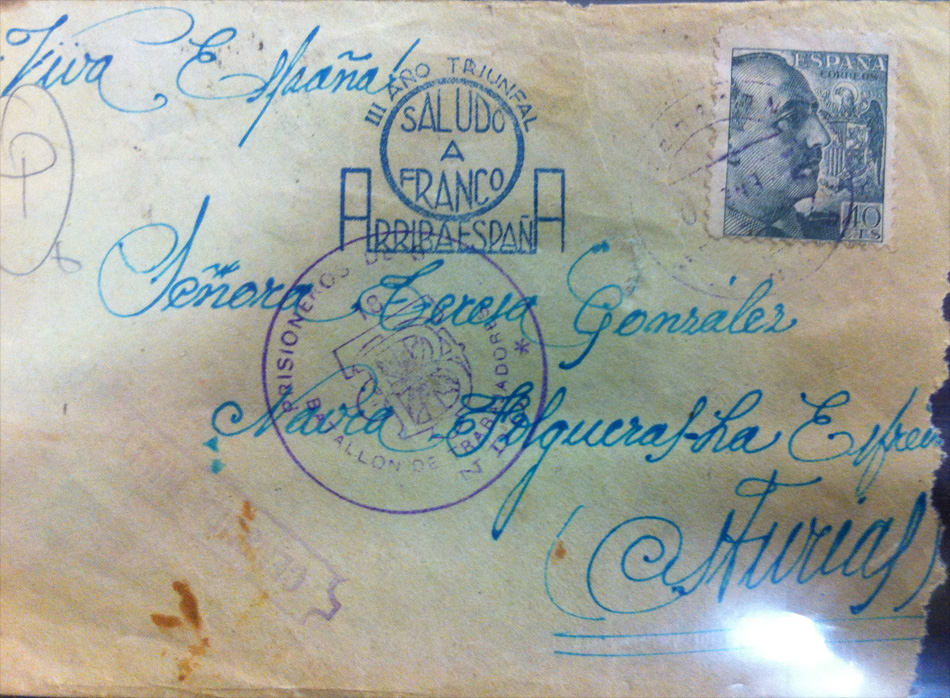 Viva España!
III AÑO TRIUNFAL
SALUDO
A
FRANCO
ARRIBA ESPAÑA
ESPAÑA
CORREOS
40
CTS
Señora Teresa González
PRISIONEROS DE
BATALLON DE TRABAJADORES
Navia Folgueras-La
(Asturias)